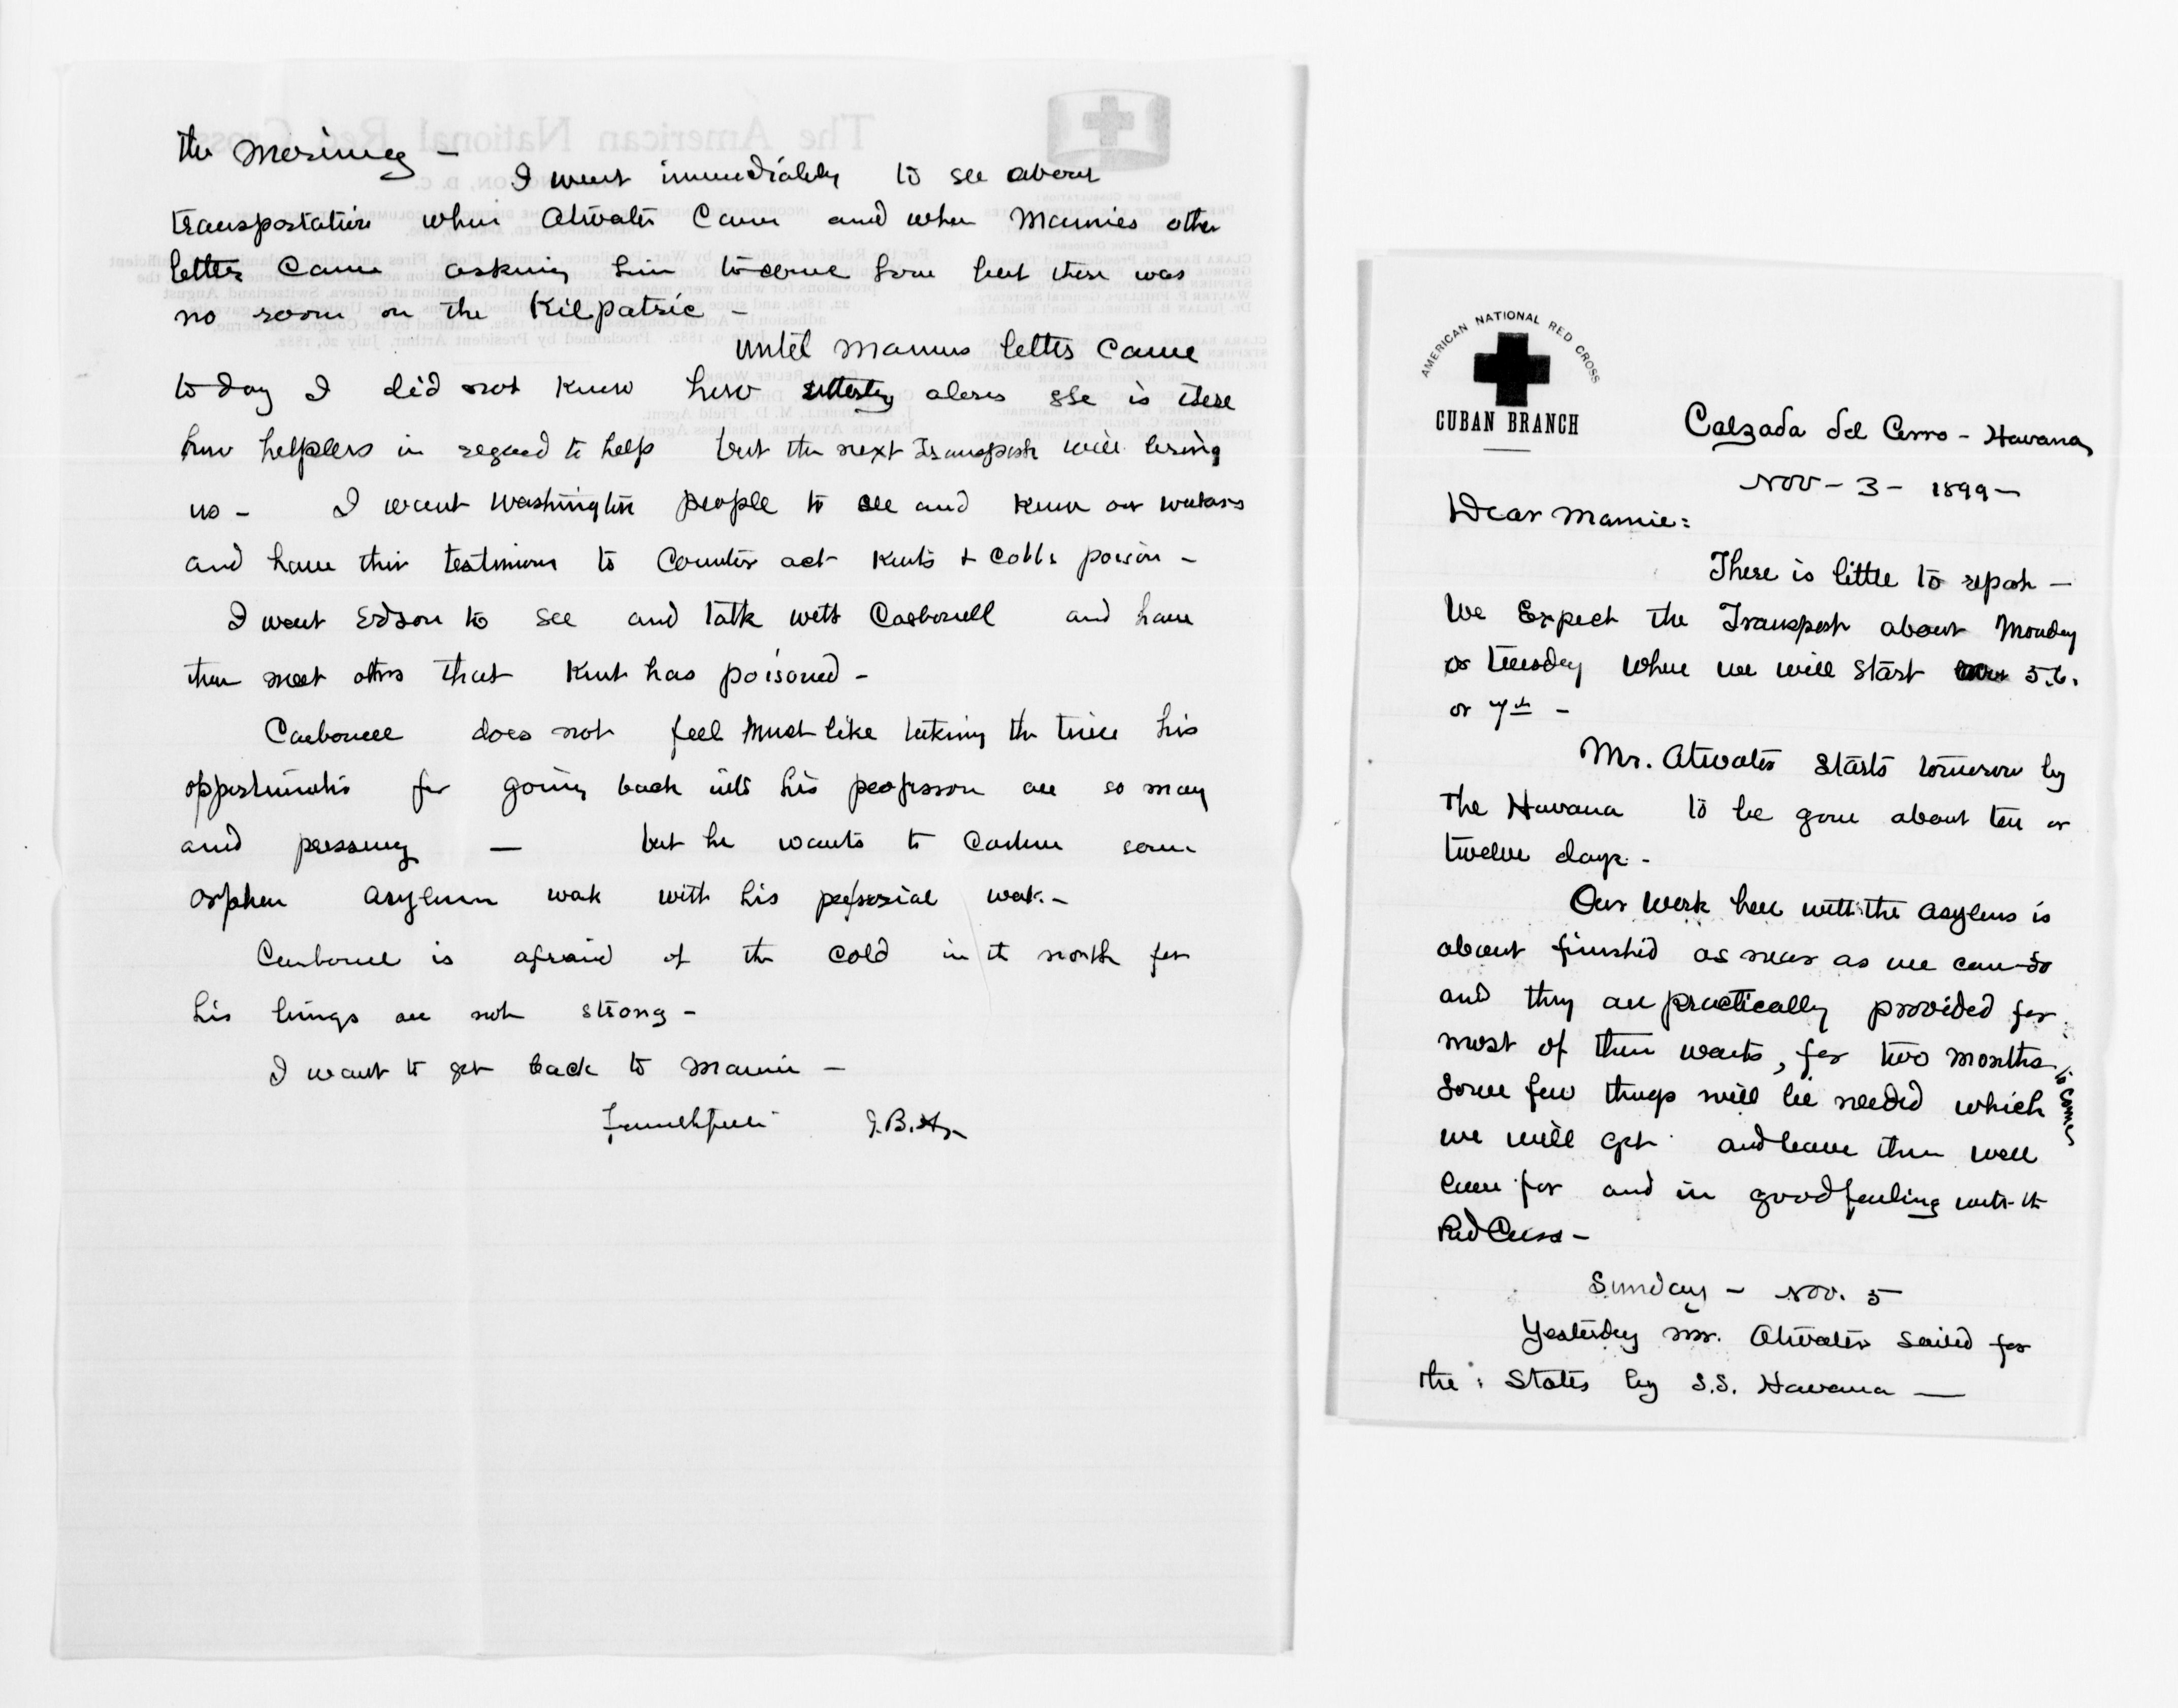 the Morning -
I went immediately to see about
transportation when Atwater Came and when Mamies other
letter Came asking him to come home but there was
no room on the Kilpatric -
Until Mamies letter came
to day I did not know how utterly alone she is there
how helpless in regard to help but the next Transport will bring
us - I want Washington people to see and know our workers
and have their testimony to Counter act Kents & Cobbs poison -
I want Edson to see and talk with Carbonell and have
them meet others that Kent has poisoned -
Carbonell does not feel Much like taking the time his
opportunities for going back into his profession are so many
and pressing - but he wants to Combine some
orphan asylum work with his professional work. -
Carbonell is afraid of the cold in the north for
his lungs are not strong -
I want to get back to Mamie -
Faithfully J.B.H.
AMERICAN NATIONAL RED CROSS
CUBAN BRANCH
Calzada del Cerro - Havana
Nov - 3 - 1899 -
Dear Mamie:
There is little to report -
We Expect the Transport about Monday
or Tuesday when we will start 5.6.
or 7th -
Mr. Atwater starts tomorrow by
the Havana to be gone about ten or
twelve days. -
Our work here with the asylums is
about finished as near as we can do
and they are practically provided for
most of their wants, for two months to come
Some few things will be needed which
we will get and leave them well
cared for and in good feeling with the
Red Cross -
Sunday - Nov. 5
Yesterday Mr. Atwater sailed for
the States by S.S. Havana -